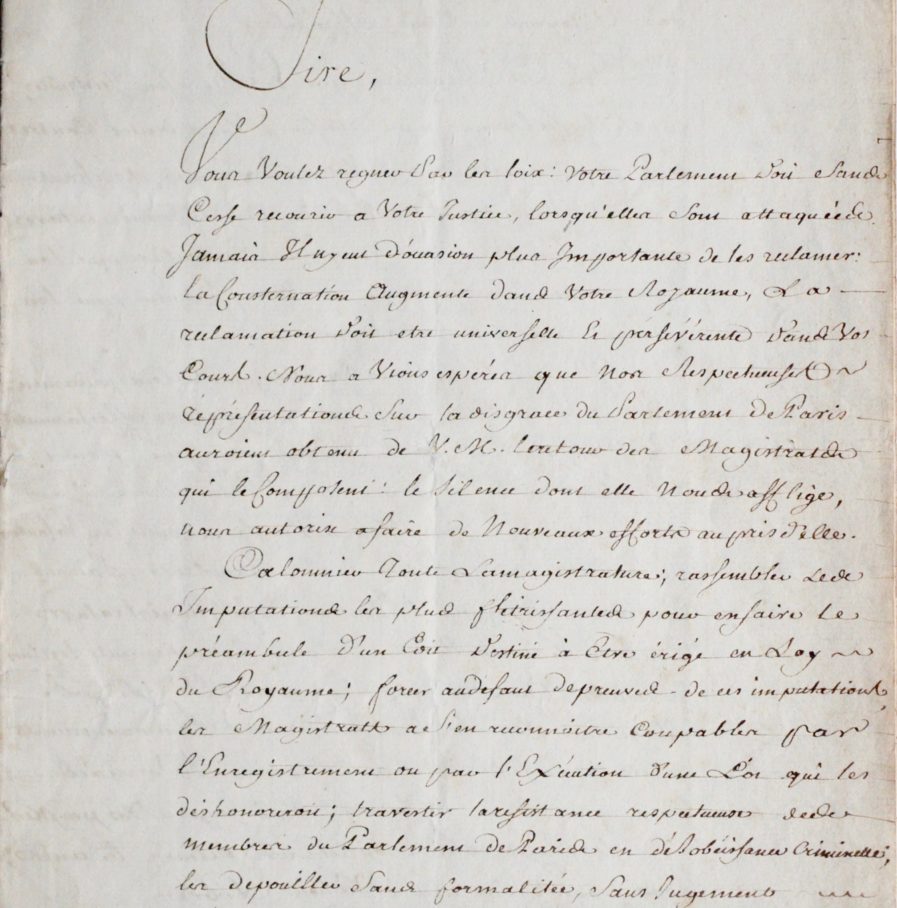 Sire,
Vous Voulez regner Par les loix: Votre Parlement Doit Sans
Cesse recourir a Votre Justice, lorsqu'elles Sont attaquées.
Jamais Il n'y eut d'occasion plus Importante de les reclamer:
la Consternation Augmente dans Votre Royaume, La
reclamation Doit etre universelle Et persévérente Dans Vos
Cours. Nous avions espérés que Nos Respectueuses
représentations Sur la disgrace du Parlement de Paris
auroient obtenu de V. M. le retour des Magistrats
qui le Composent: le Silence dont elle Nous afflige,
nous autorise a faire de Nouveaux efforts auprès d'elle.
Calomnier Toute La magistrature; rassembler Les
Imputations les plus flétrissantes pour en faire le
préambule D'un Edit Destiné à Etre érigé en Loy
du Royaume; forcer au defaut de preuves de ces imputations,
les Magistrats a s'en reconnoitre Coupables par
l'Enregistrement ou par l'Exécution d'une Loi qui les
déshonoreroit; travestir la resistance respectueuse des
membres du Parlement de Paris en désobéissance Criminelle;
les depouiller Sans formalités, Sans Jugement